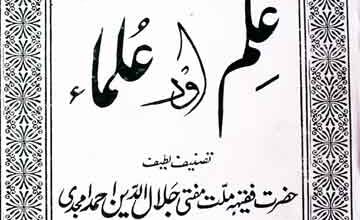 علم اور علماء
تصنیف لطیف
حضرت فقیہ ملت مفتی جلال الدین احمد امجدی